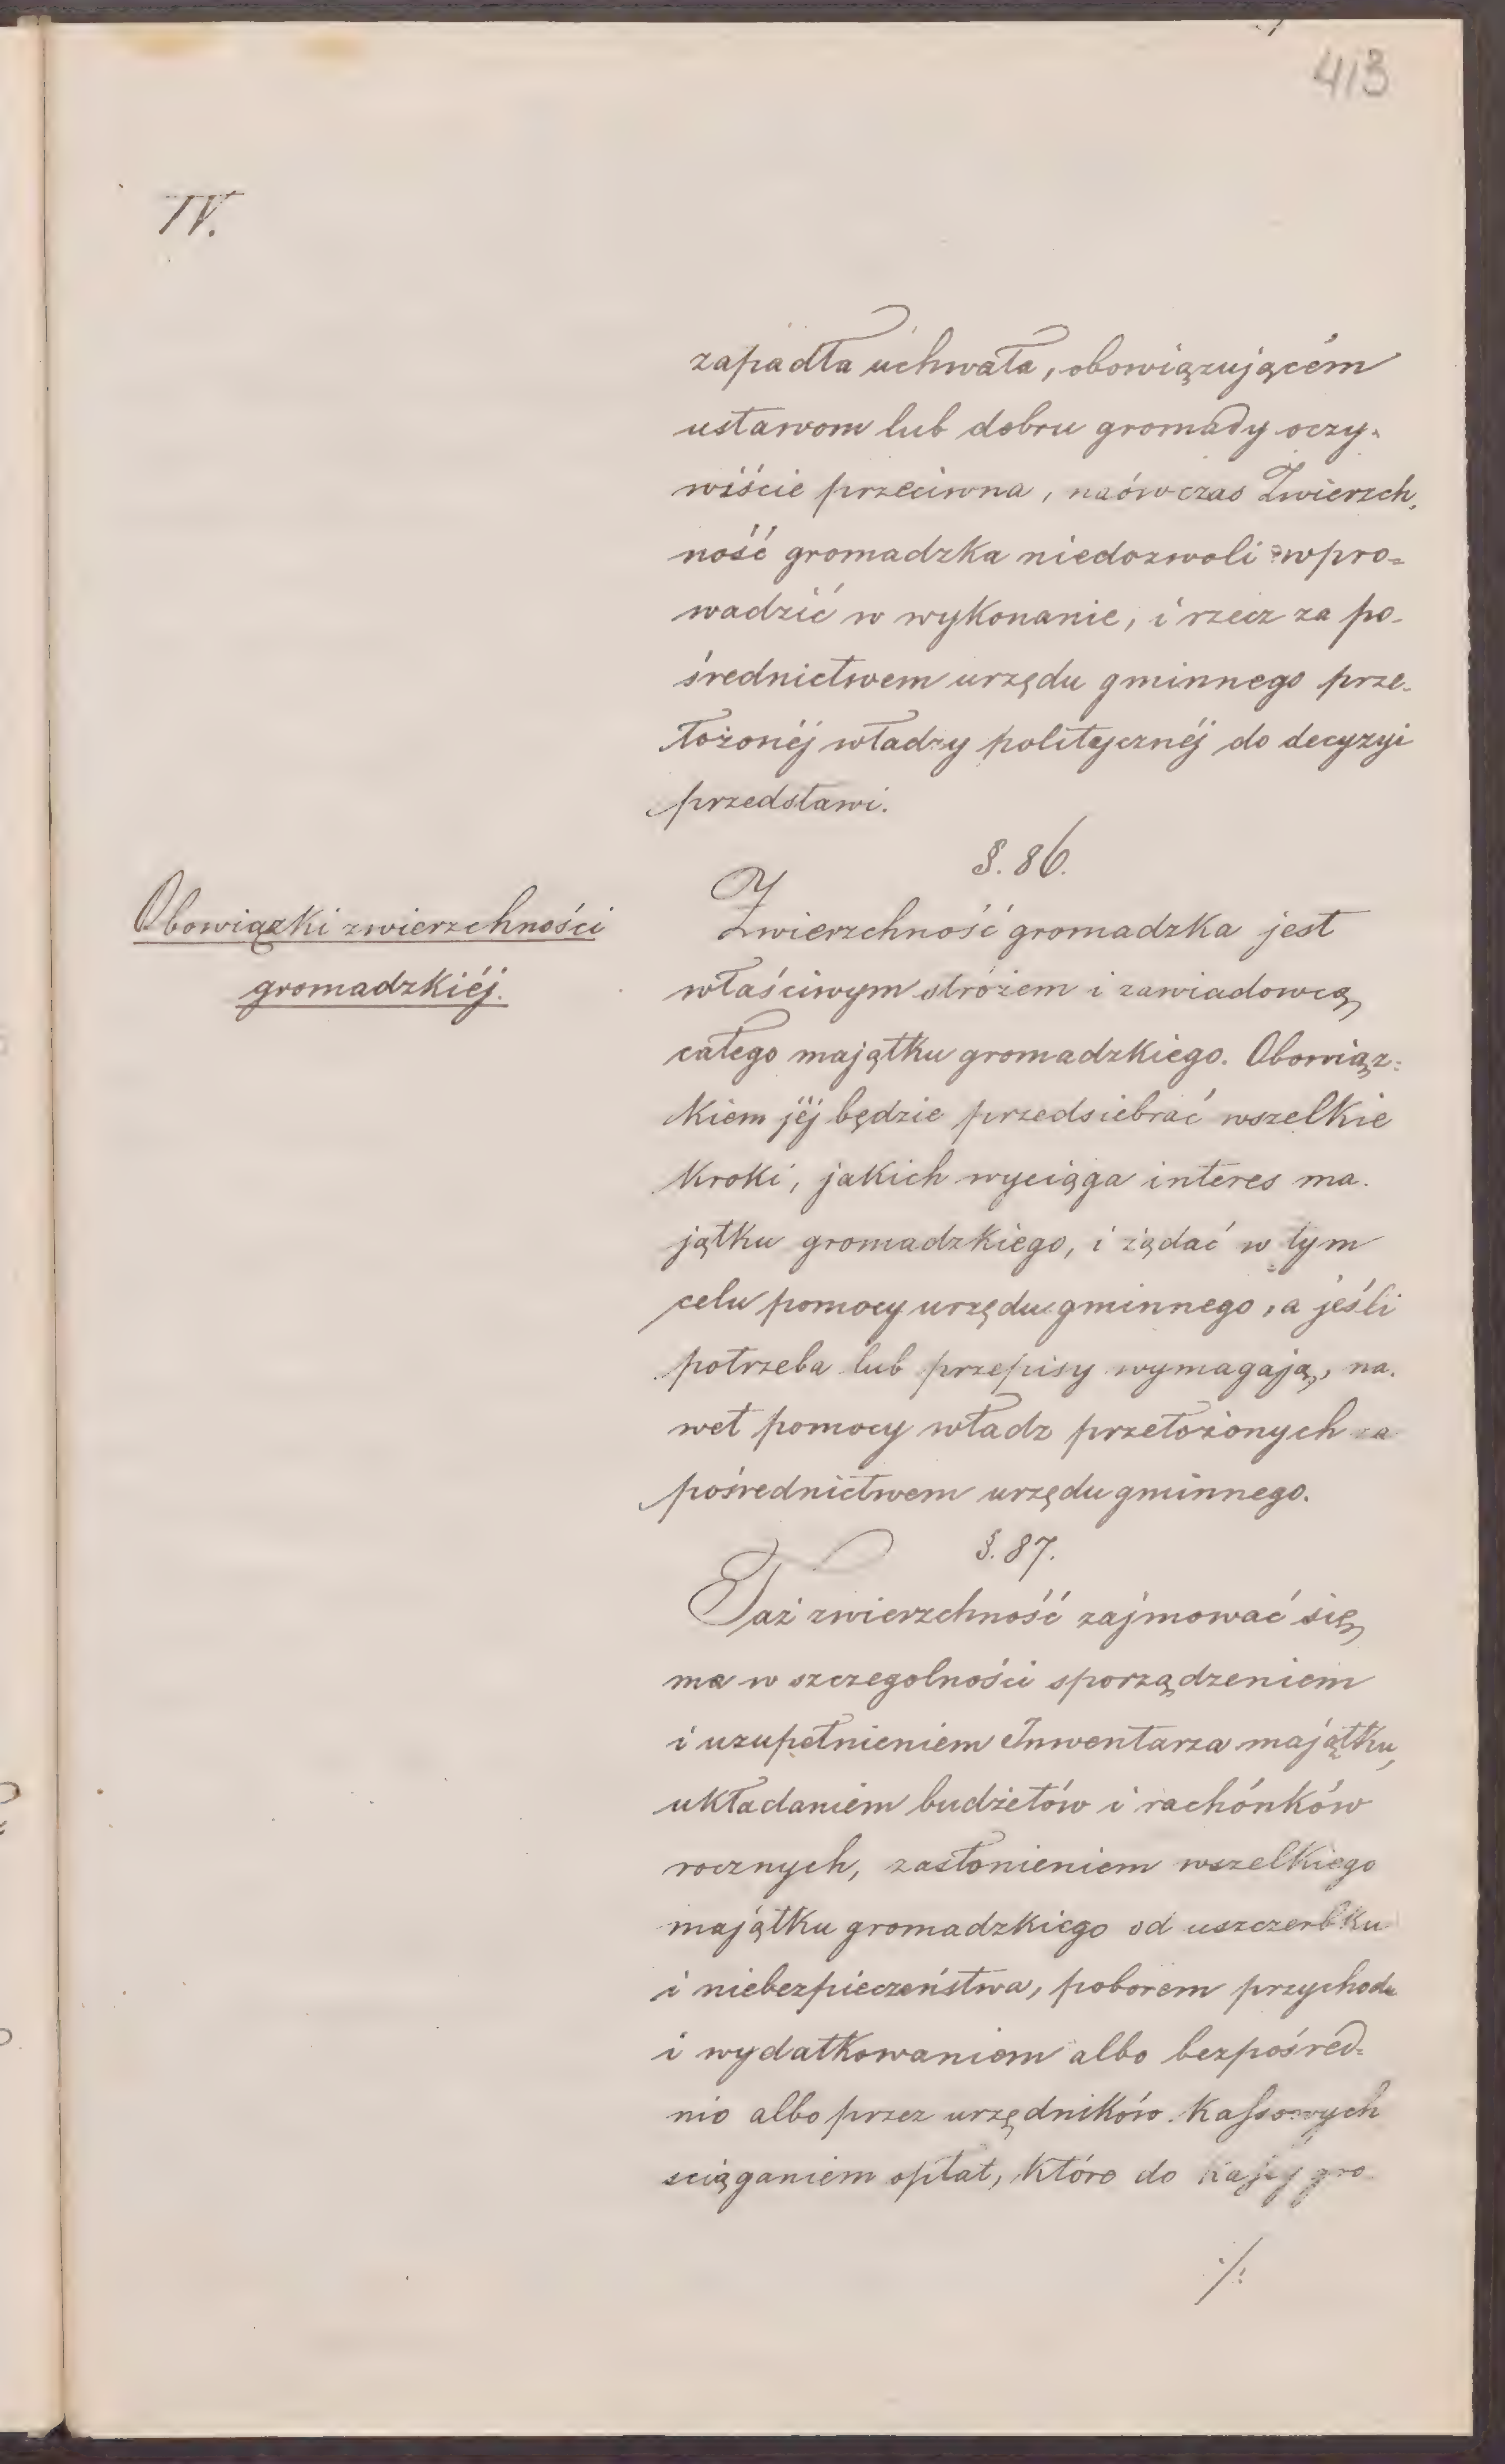 413
IV.
zapadła uchwała, obowiązującém
ustawom lub dobru gromady oczy-
wiście przeciwna, naówczas Zwierzch-
ność gromadzka niedozwoli wpro-
wadzić w wykonanie, i rzecz za po-
średnictwem urzędu gminnego prze-
łożonéj władzy politycznéj do decyzyi
przedstawi.
§. 86.
Obowiązki zwierzchności
gromadzkiéj.
Zwierzchność gromadzka jest
właściwym stróżem i zawiadowcą
całego majątku gromadzkiego. Obowiąz-
kiem jéj będzie przedsiebrać wszelkie
kroki, jakich wyciąga interes ma-
jątku gromadzkiego, i żądać w tym
celu pomocy urzędu gminnego, a jeśli
potrzeba lub przepisy wymagają, na-
wet pomocy władz przełożonych za
pośrednictwem urzędu gminnego.
§. 87.
Taż zwierzchność zajmować się
ma w szczegolności sporządzeniem
i uzupełnieniem Inwentarza majątku,
układaniem budżetów i rachónków
rocznych, zasłonieniem wszelkiego
majątku gromadzkiego od uszczerbku
i niebezpieczeństwa, poborem przychodu
i wydatkowaniem albo bezpośred-
nio albo przez urzędników kassowych
sciąganiem opłat, które do kassy gro
./.